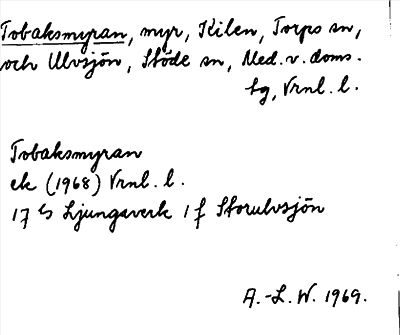 Tobaksmyran, myr, Kilen, Torps sn,
och Ulvsjön, Stöde sn, Med. v. doms.
tg, Vrnl. l.
Tobaksmyran
ek (1968) Vrnl. l.
17 G Ljungaverk 1 f Storulvsjön
A.-L. W. 1969.